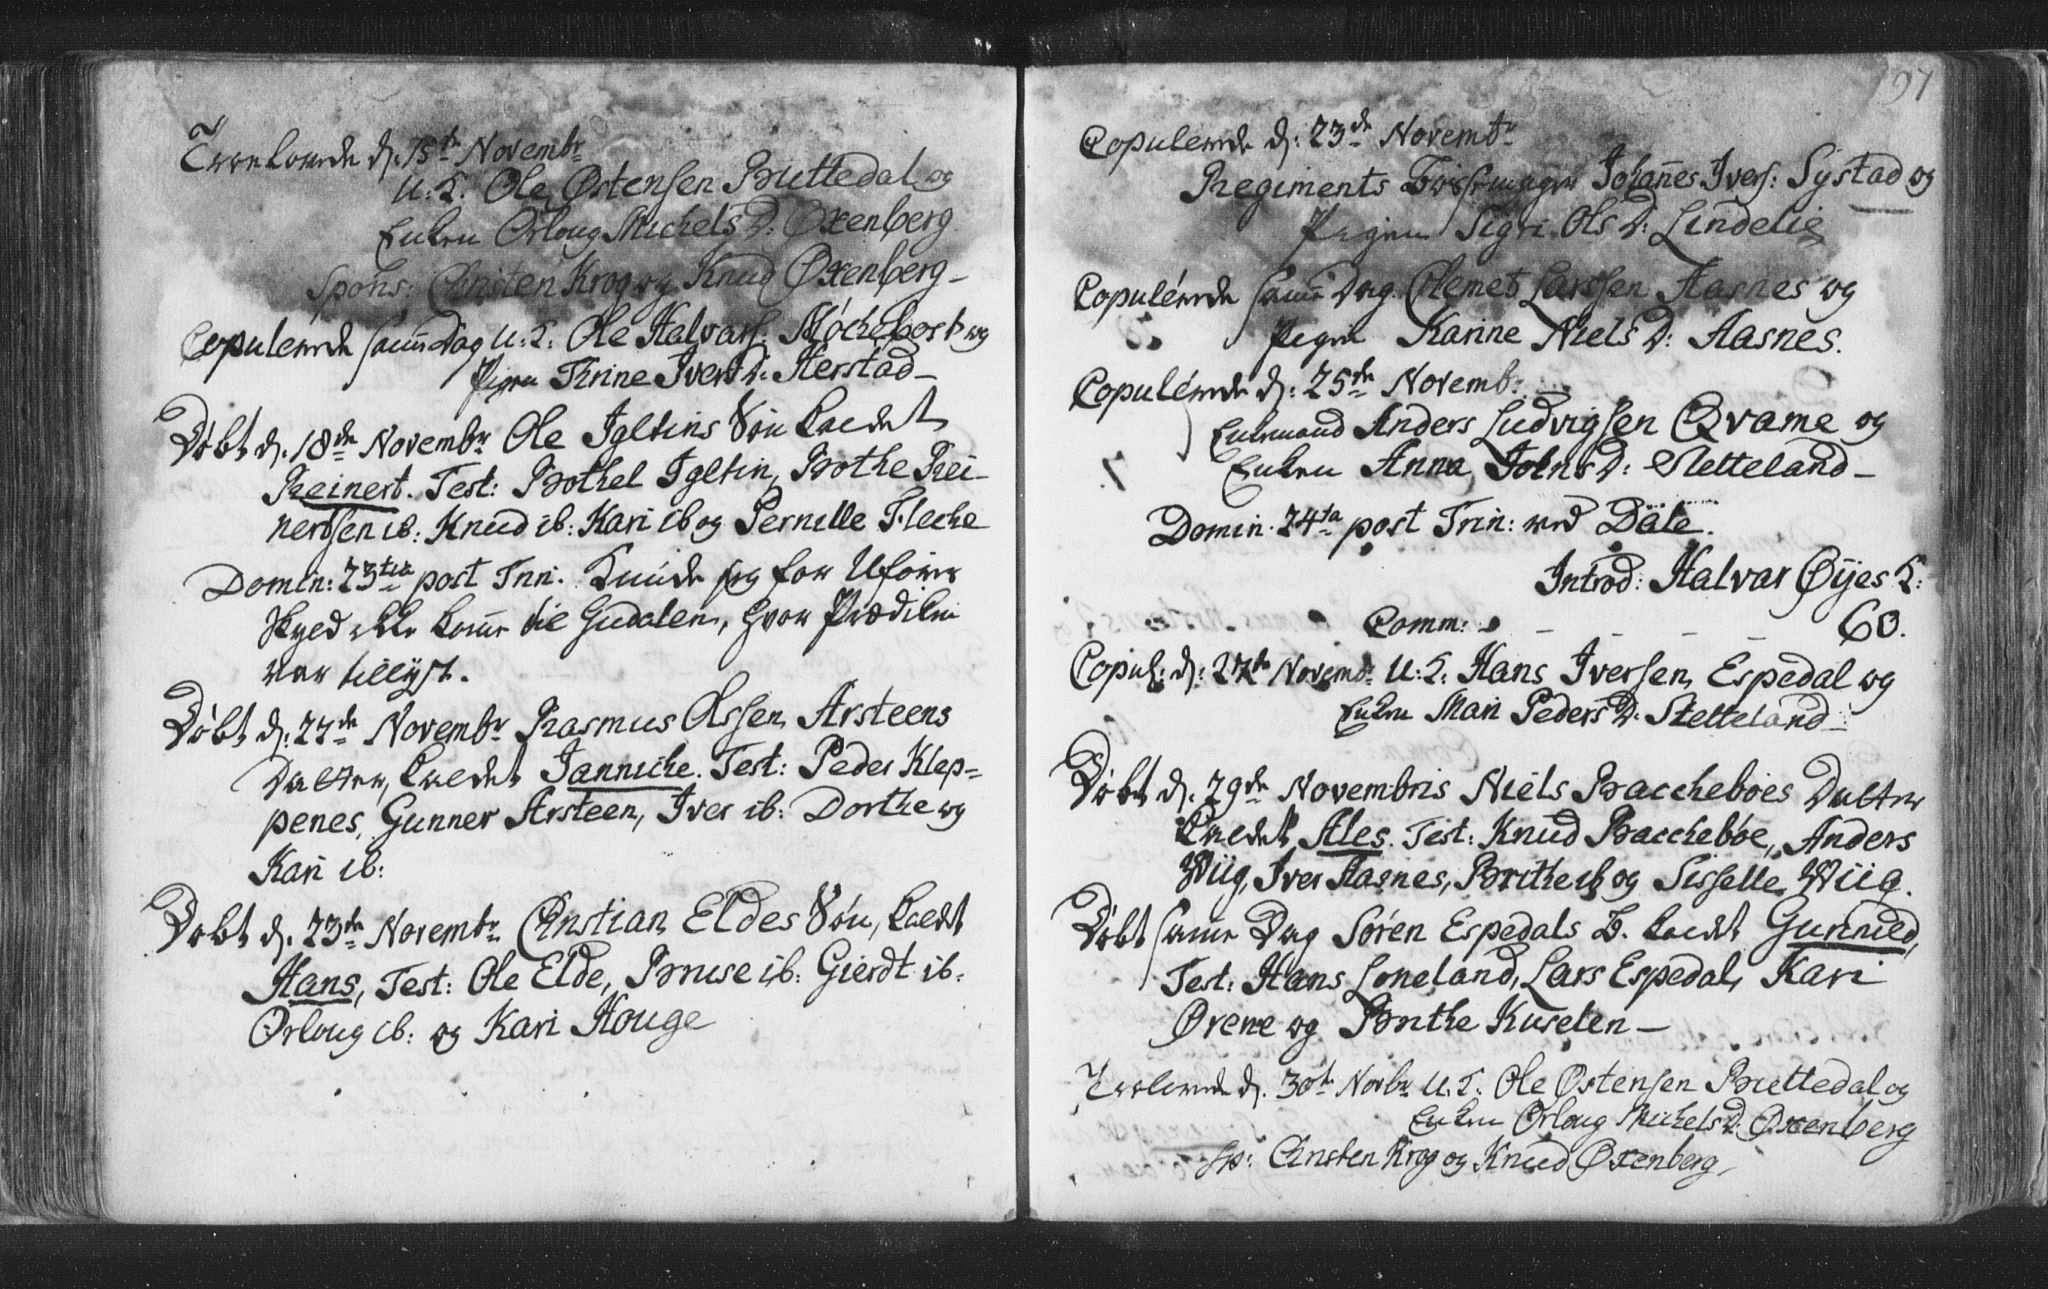 Trolovede d. 15de Novembr
U: K: Ole Østensen Buttedal og
Enken Orloug Michels D: Oxenberg
Spons: Christen Krog og Knud Oxenberg –
Copulerede samme dag U: K: Ole Halvars: Møchebost og
Pigen Thrine Ivers D: Herstad –
Døbt d. 18de Novembr Ole Igltins Søn kaldet
Reinert. Test: Bothel Igltin, Bothe Rei-
nertsen ib: Knud ib: Kari ib og Pernille Fleche
Domin: 23tia post Trin. kunde jeg for Uføres
Skyld ikke komme til Gudalen, hvor Prædiken
var tillyst.
Døbt d: 22de Novembr Rasmus Olssen Arsteens
Datter, kaldet Janniche. Test: Peder Klep=
penes, Gunner Arsteen, Iver ib: Dorthe og
Kari ib:
Døbt d. 23de Novembr. Christian Eldes Søn, kaldt
Hans, Test: Ole Elde, Bruse ib: Gierdt ib:
Orloug ib: og Kari Houge
97
Copulerede d: 23de Novembr
Regiments Johannes Ivers: Systad og
Pigen Sigri Ols D: Lindelie
Copulerede samme Dag Clemet Larssen Aasnes og
Pigen Karine Niels D: Aasnes.
Copulerede d: 25de Novemb:
Enkemand Anders Ludvigsen Qvame og
Enken Anna Joens D: Sletteland –
Domin. 24ta post Trin: ved Dale.
Introd: Halvar Øÿes K:
Comm: – – – – 60.
Copul: d: 27de Novembr U: K: Hans Iversen Espedal og
Enken Mari Peders D. Stetteland –
Døbt d. 29de Novembris Niels Bacchebøes Datter
kaldet Ales. Test: Knud Bacchebøe, Anders
Wiig, Iver Aasnes, Brithe ib og Sisselle Wiig.
Døbt samme Dag Søren Espedals B. kaldt Gunnild,
Test: Hans Løneland, Lars Espedal, Kari
Ørene og Brithe Kuselen –
Trolovede d. 30te Novbr U. K: Ole Østensen Buttedal og
Enken Orloug Michels D: Oxenberg
Sp: Christen Krog og Knud Oxenberg,